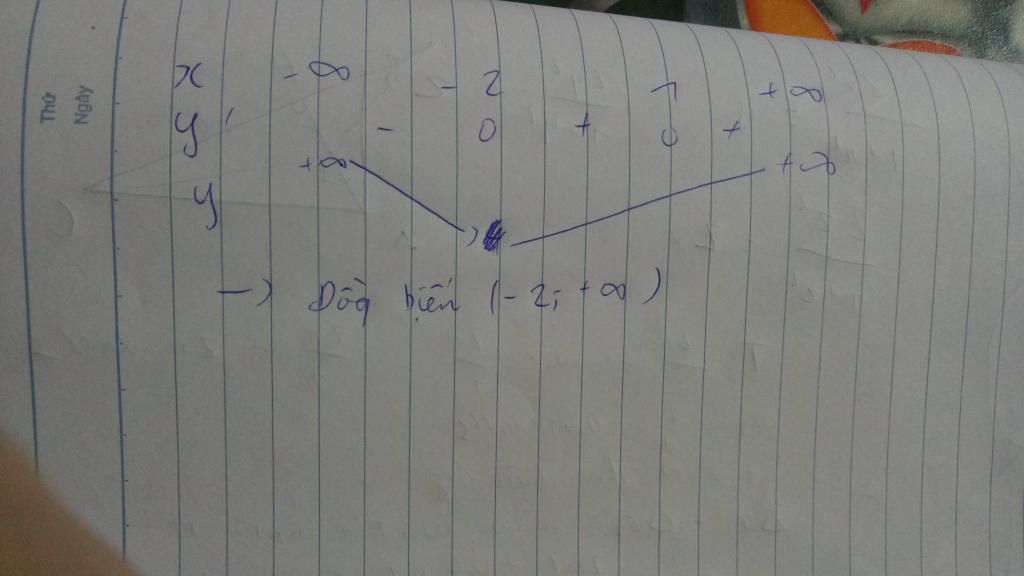 Thứ
Ngày
x -∞ -2 1 +∞
y' - 0 + 0 +
y +∞ +∞
→ Đồng biến (-2; +∞)